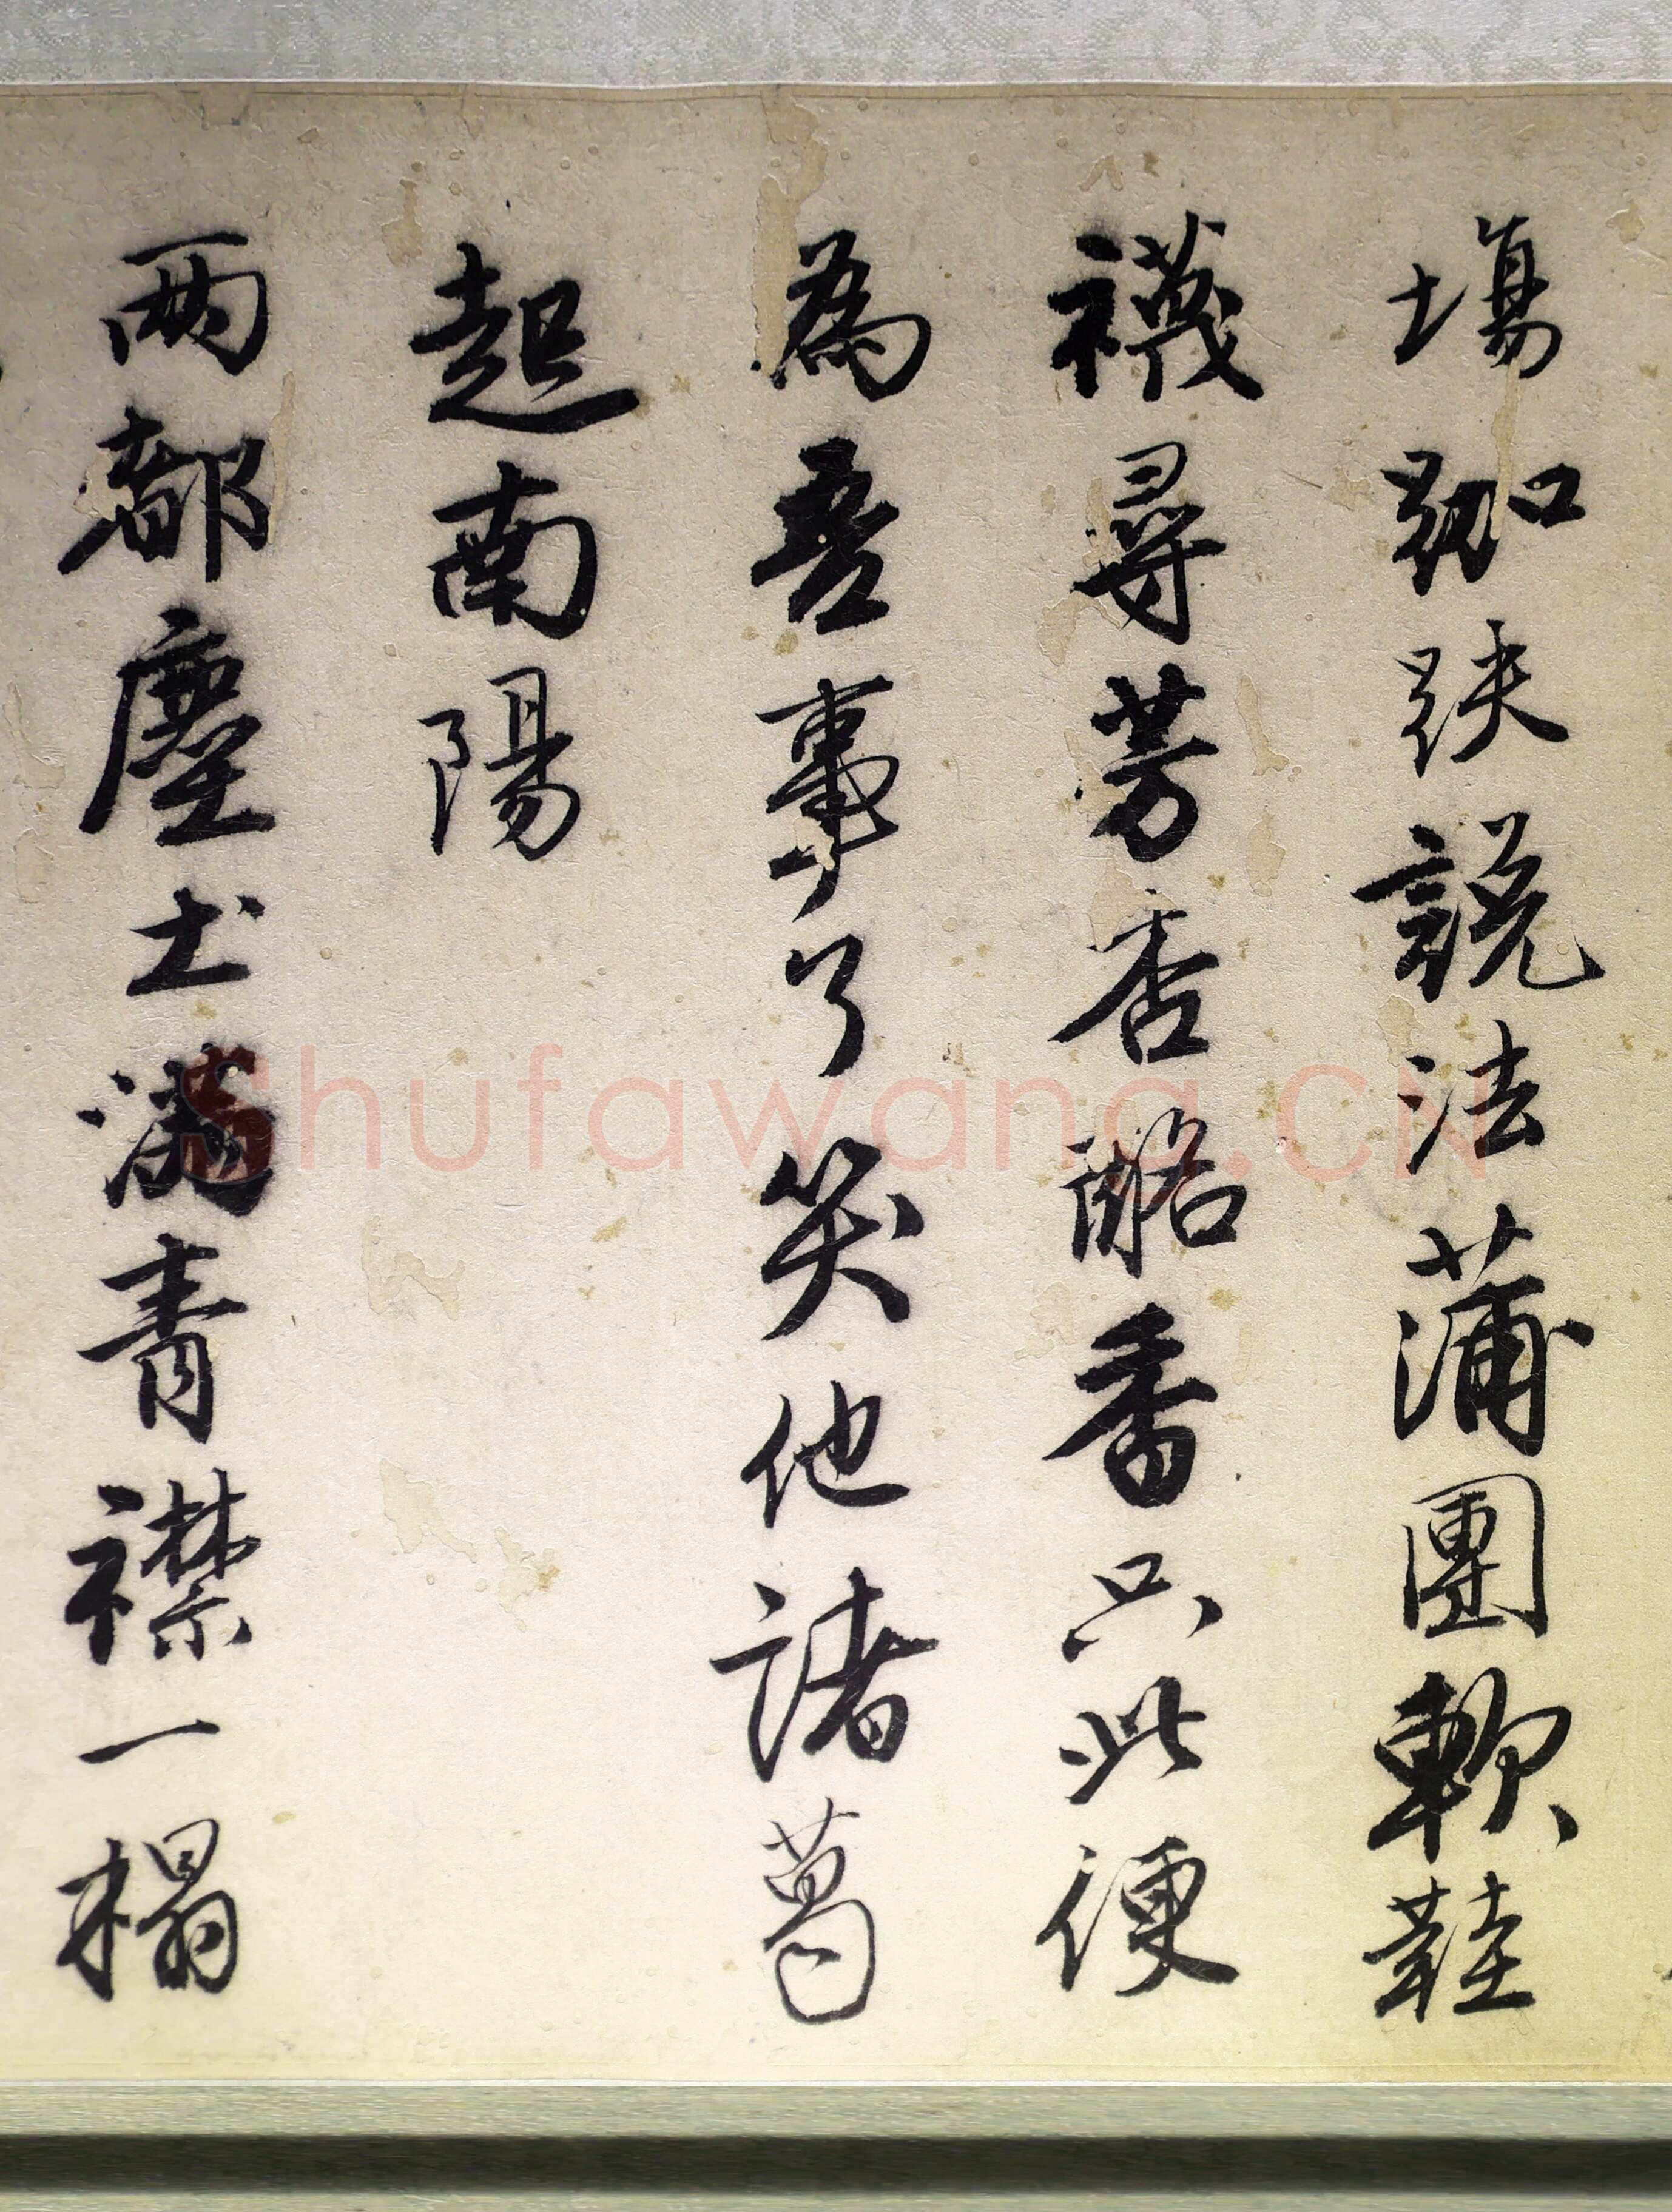 塲跏趺說法蒲團軟鞋
襪尋芳杏酪香只此便
為吾事了笑他諸葛
起南陽
兩都塵土滿青襟一榻
Shufawang.CN